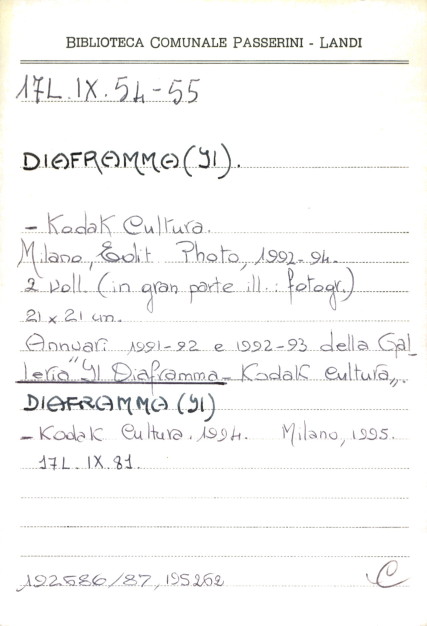 BIBLIOTECA COMUNALE PASSERINI - LANDI
17L.IX.54-55
DIAFRAMMA (Il).
- Kodak Cultura.
Milano, Edit. Photo, 1992-94.
2 voll. (in gran parte ill.: fotogr.)
21 x 21 cm.
Annuari 1991-92 e 1992-93 della Gal_
leria "Il Diaframma - Kodak Cultura".
DIAFRAMMA (Il)
- Kodak Cultura. 1994. Milano, 1995.
17L.IX.81.
192586/87, 195262
C